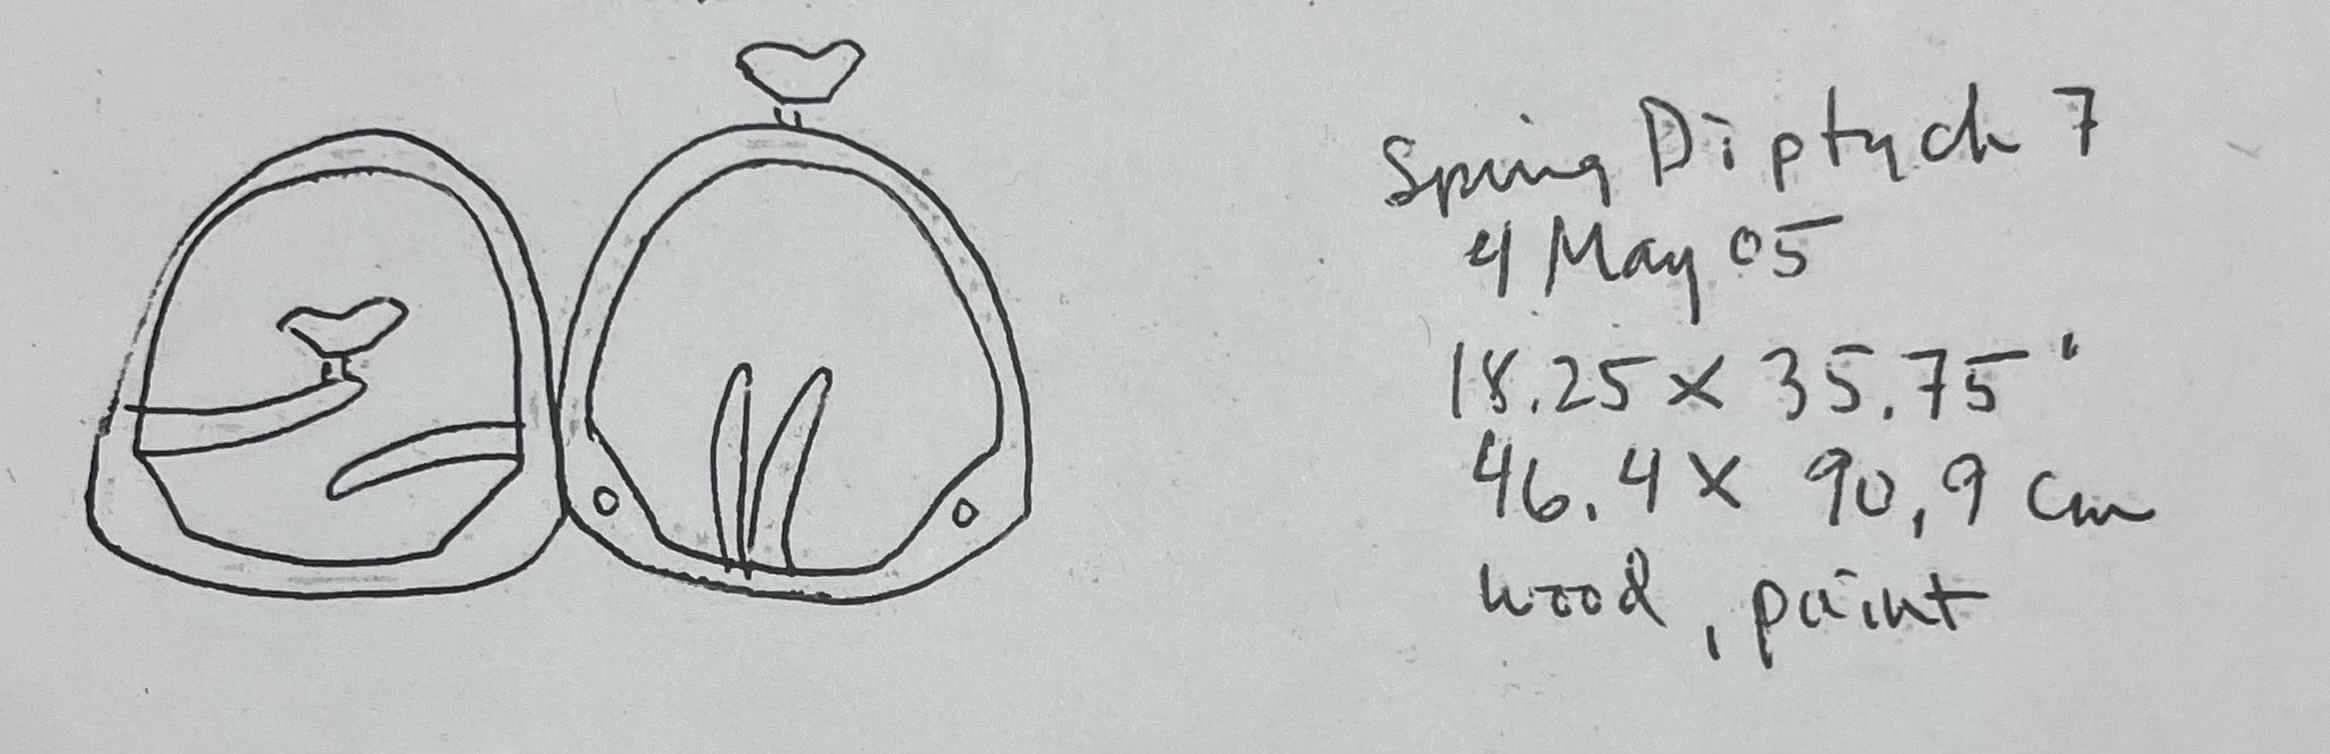 Spring Diptych 7
4 May 05
18.25 x 35.75"
46.4 x 90,9 cm
wood, paint